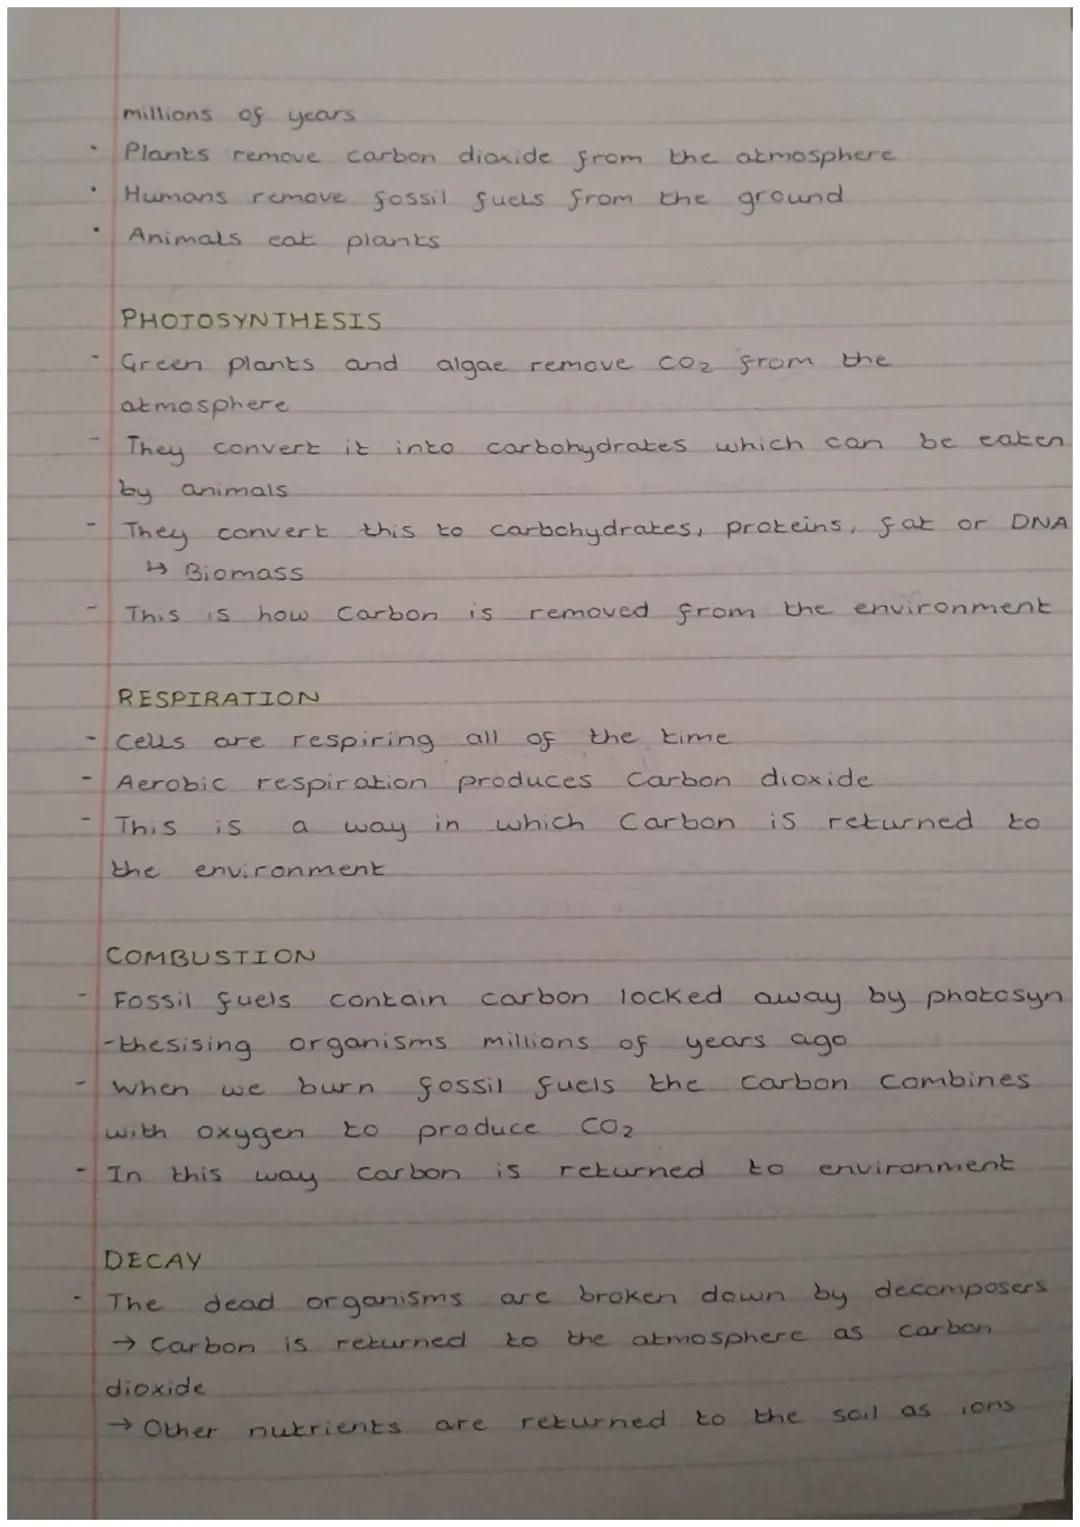 millions of years
• Plants remove carbon dioxide from the atmosphere
• Humans remove fossil fuels from the ground
• Animals eat plants
PHOTOSYNTHESIS
- Green plants and algae remove CO₂ from the
atmosphere
- They convert it into carbohydrates which can be eaten
by animals
- They convert this to carbohydrates, proteins, fat or DNA
↳ Biomass
- This is how Carbon is removed from the environment
RESPIRATION
- Cells are respiring all of the time
- Aerobic respiration produces Carbon dioxide
- This is a way in which Carbon is returned to
the environment
COMBUSTION
- Fossil fuels contain carbon locked away by photosyn
-thesising organisms millions of years ago
- When we burn fossil fuels the Carbon Combines
with oxygen to produce CO₂
- In this way Carbon is returned to environment
DECAY
- The dead organisms are broken down by decomposers
→ Carbon is returned to the atmosphere as carbon
dioxide
→ Other nutrients are returned to the soil as ions